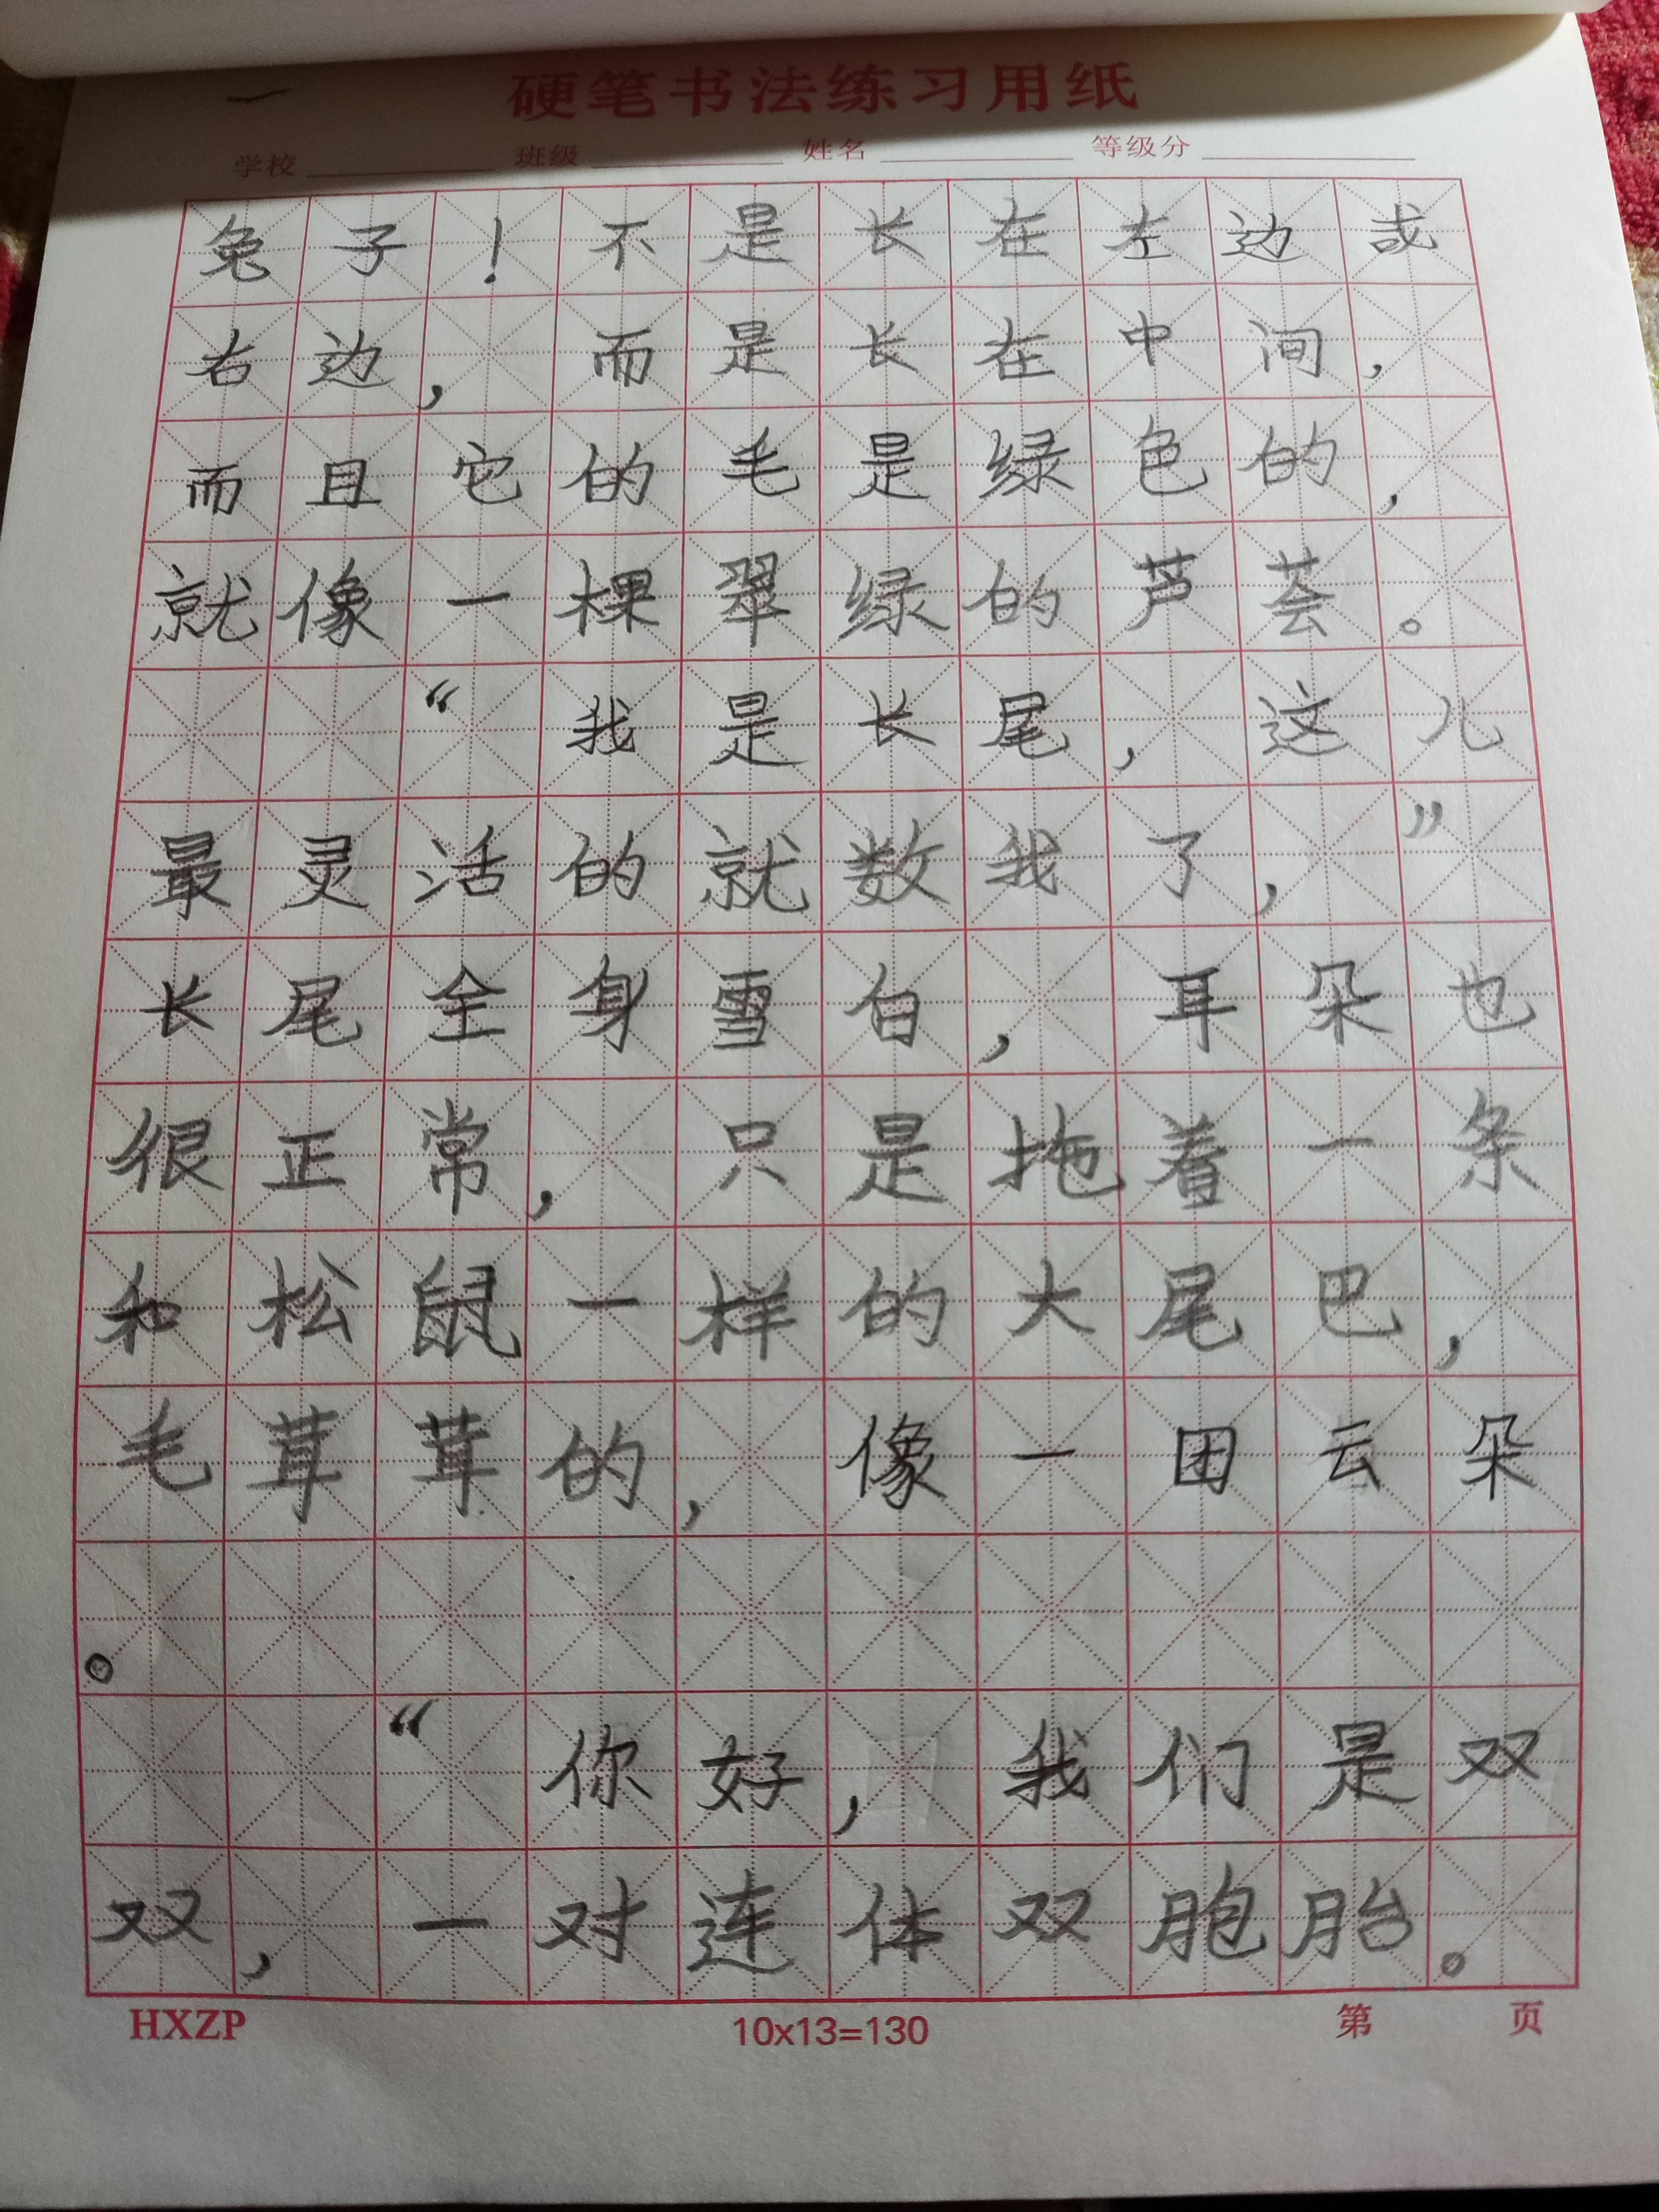 一
硬笔书法练习用纸
学校 班级 姓名 等级分
兔子！不是长在左边或
右边，而是长在中间，
而且它的毛是绿色的，
就像一棵翠绿的芦荟。
“我是长尾，这儿
最灵活的就数我了，”
长尾全身雪白，耳朵也
很正常，只是拖着一条
和松鼠一样的大尾巴，
毛茸茸的，像一团云朵
。
“你好，我们是双
双，一对连体双胞胎。
HXZP 10x13=130 第 页